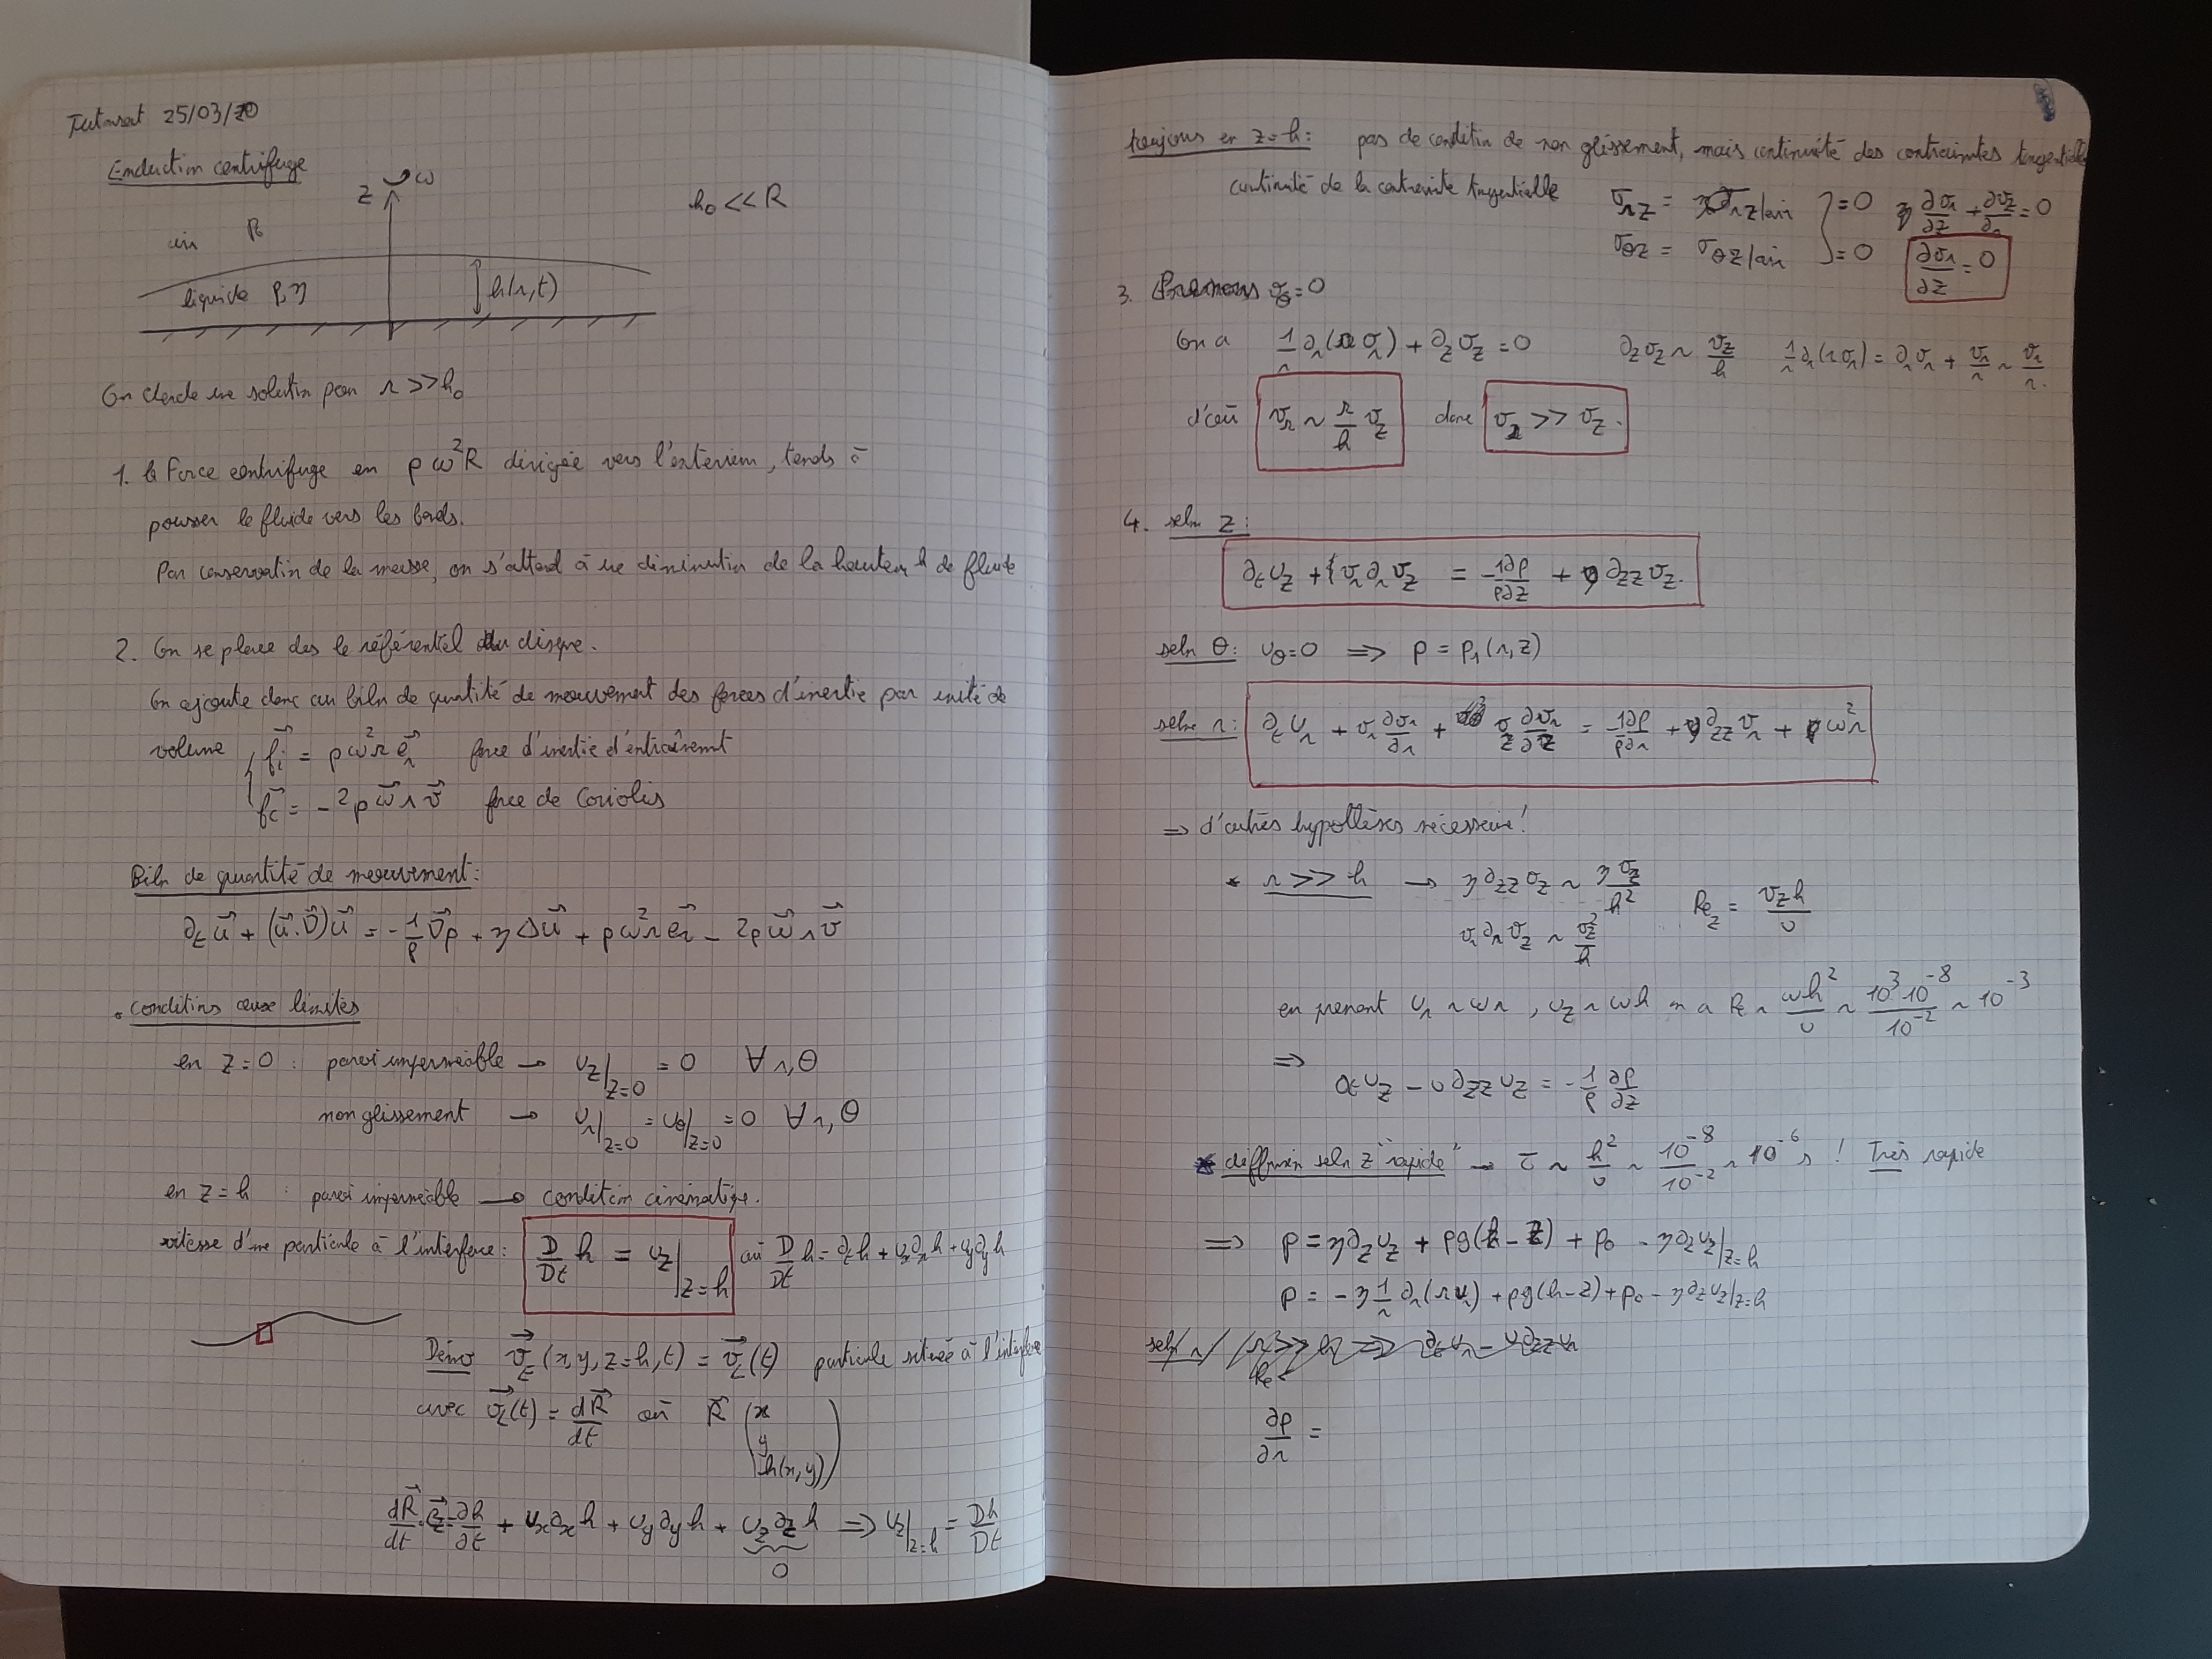 Tutorat 25/03/20
Enduction centrifuge
z ω
h₀ << R
air P₀
liquide ρ,η
h(r,t)
On cherche une solution pour r >> h₀
1. la Force centrifuge en ρω²R dirigée vers l'extérieur, tends à
pousser le fluide vers les bords.
Par conservation de la masse, on s'attend à une diminution de la hauteur h de fluide
2. On se place des le référentiel du disque.
On ajoute donc au bilan de quantité de mouvement des forces d'inertie par unité de
volume { f⃗i = ρω²r e⃗r force d'inertie d'entraînement
f⃗c = -2ρ ω⃗ ∧ v⃗ force de Coriolis
Bilan de quantité de mouvement :
∂t u⃗ + (u⃗.∇⃗)u⃗ = -1/ρ ∇⃗p + η Δu⃗ + ρω²r e⃗r - 2ρ ω⃗ ∧ v⃗
. Conditions aux limites
en z=0 : paroi imperméable → vz|z=0 = 0 ∀ r,θ
non glissement → vr|z=0 = vθ|z=0 = 0 ∀ r,θ
en z=h : paroi imperméable → condition cinématique.
vitesse d'une particule à l'interface : D/Dt h = vz|z=h où D/Dt h = ∂t h + vx∂x h + vy∂y h
Démo v⃗L(x,y,z=h,t) = v⃗L(t) particule située à l'interface
avec v⃗L(t) = dR⃗/dt où R⃗ (x
y
h(x,y))
dR⃗/dt . e⃗z = ∂h/∂t + vx∂x h + vy∂y h + vz∂z h ⇒ vz|z=h = Dh/Dt
0
toujours en z=h : pas de condition de non glissement, mais continuité des contraintes tangentielles
continuité de la contrainte tangentielle σrz = σrz|air } = 0 η ∂vr/∂z + ∂vz/∂r = 0
σθz = σθz|air } = 0 ∂vr/∂z = 0
3. Prenons vθ = 0
On a 1/r ∂r(r vr) + ∂z vz = 0 ∂z vz ~ vz/h 1/r ∂r(r vr) = ∂r vr + vr/r ~ vr/r.
d'où vr ~ r/h vz donc vr >> vz.
4. selon z :
∂t vz + vr ∂r vz = -1/ρ ∂p/∂z + υ ∂zz vz.
selon θ : vθ=0 ⇒ p = p₁(r,z)
selon r : ∂t vr + vr ∂vr/∂r + vz ∂vr/∂z = -1/ρ ∂p/∂r + υ ∂zz vr + ω²r
⇒ d'autres hypothèses nécessaire !
* r >> h → η ∂zz vz ~ η vz/h² Re_z = vz h/υ
vr ∂r vz ~ vz²/h
en prenant vr ~ ωr, vz ~ ωh on a Re ~ ωh²/υ ~ 10³ 10⁻⁸/10⁻² ~ 10⁻³
⇒
∂t vz - υ ∂zz vz = -1/ρ ∂p/∂z
* diffusion selon z "rapide" → τ ~ h²/υ ~ 10⁻⁸/10⁻² ~ 10⁻⁶ s ! Très rapide
⇒ p = η∂z vz + ρg(h-z) + p₀ - η∂z vz|z=h
p = -η 1/r ∂r(r vr) + ρg(h-z) + p₀ - η∂z vz|z=h
selon r r >> h ⇒ ∂t vr - υ∂zz vr
Re <
∂p/∂r =